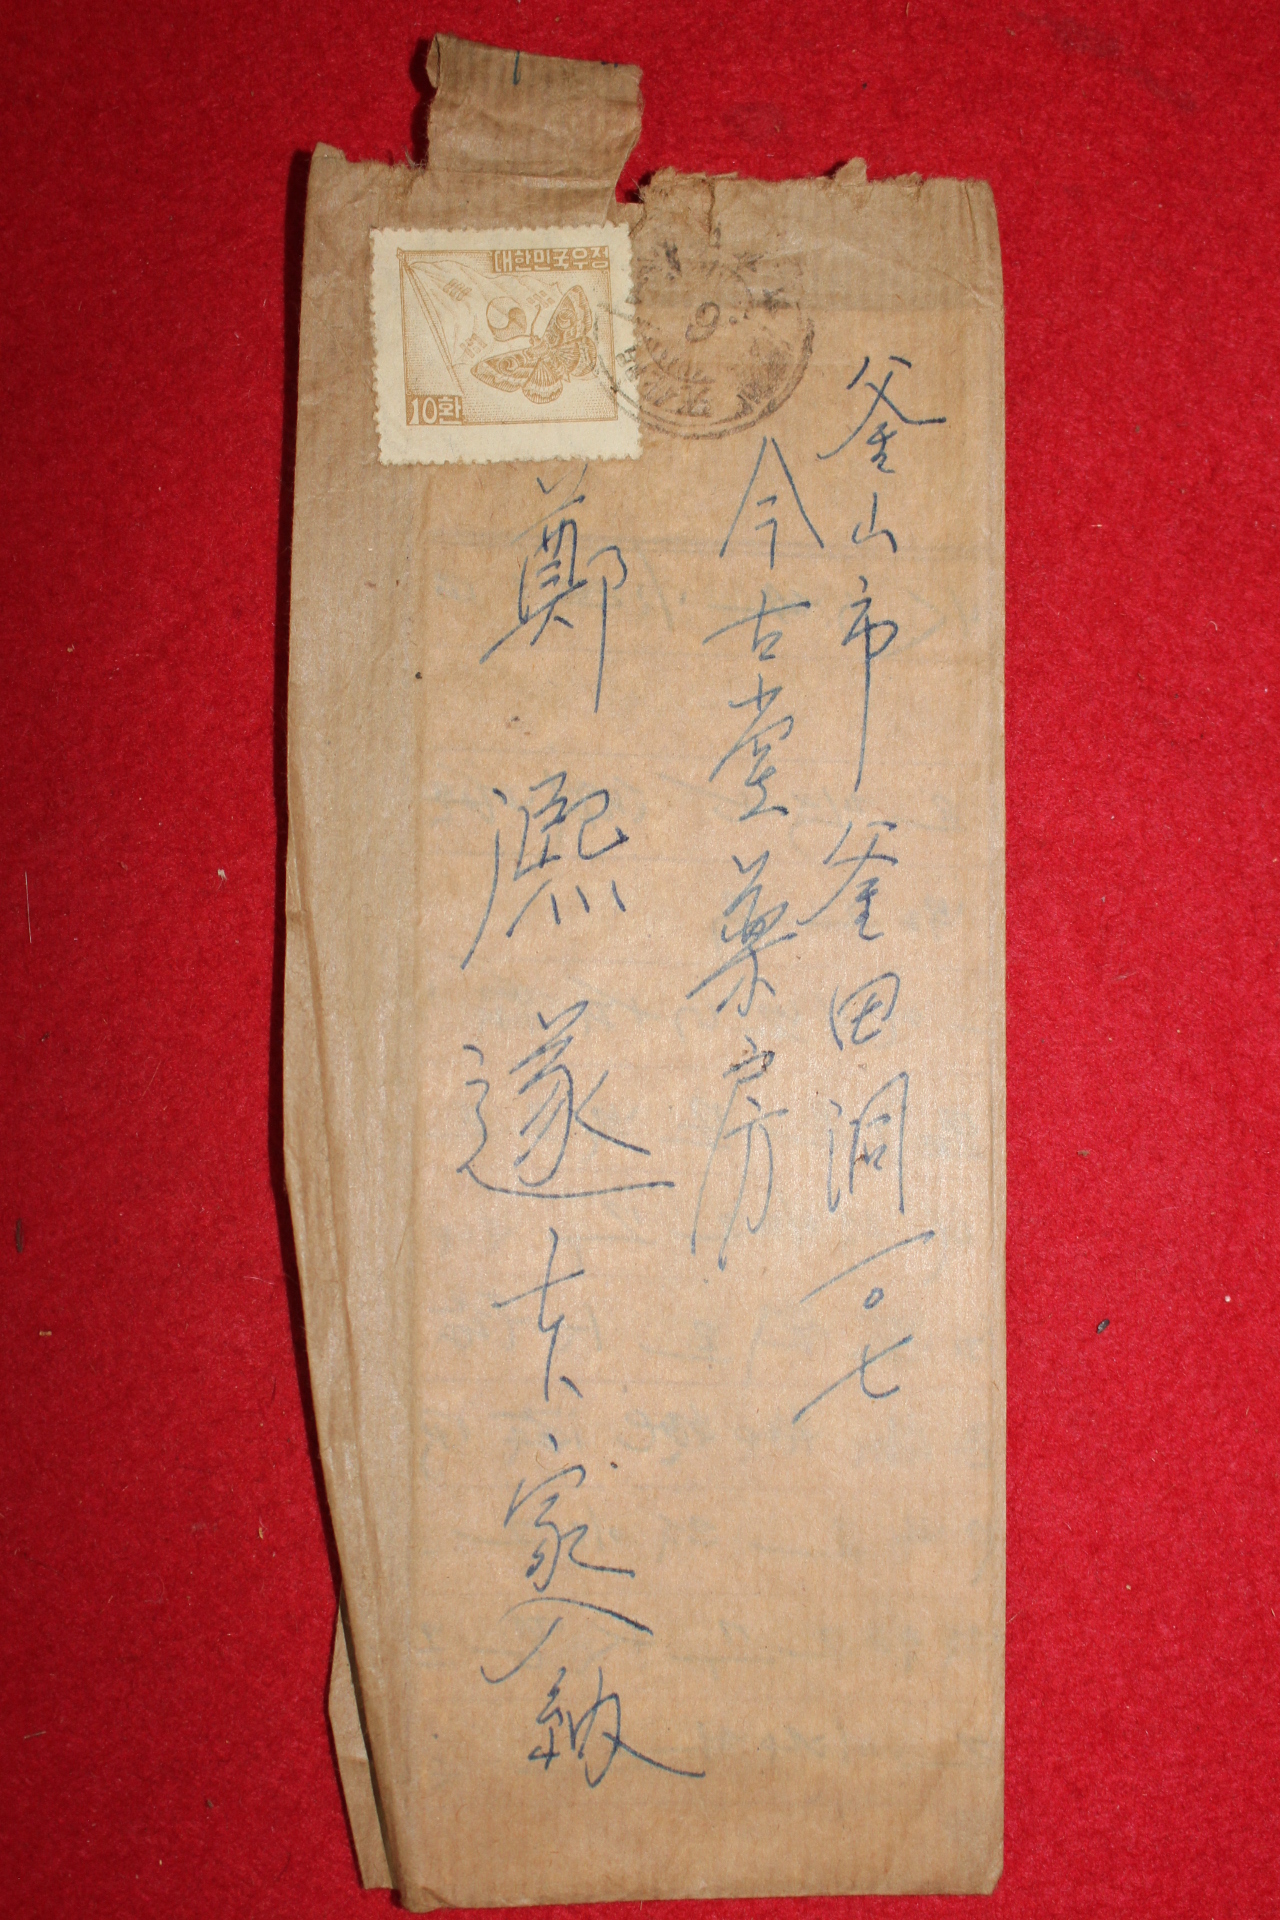 대한민국우정
10환
釜山市 釜田洞 一〇七
今古堂藥房
鄭熈遂本家入納